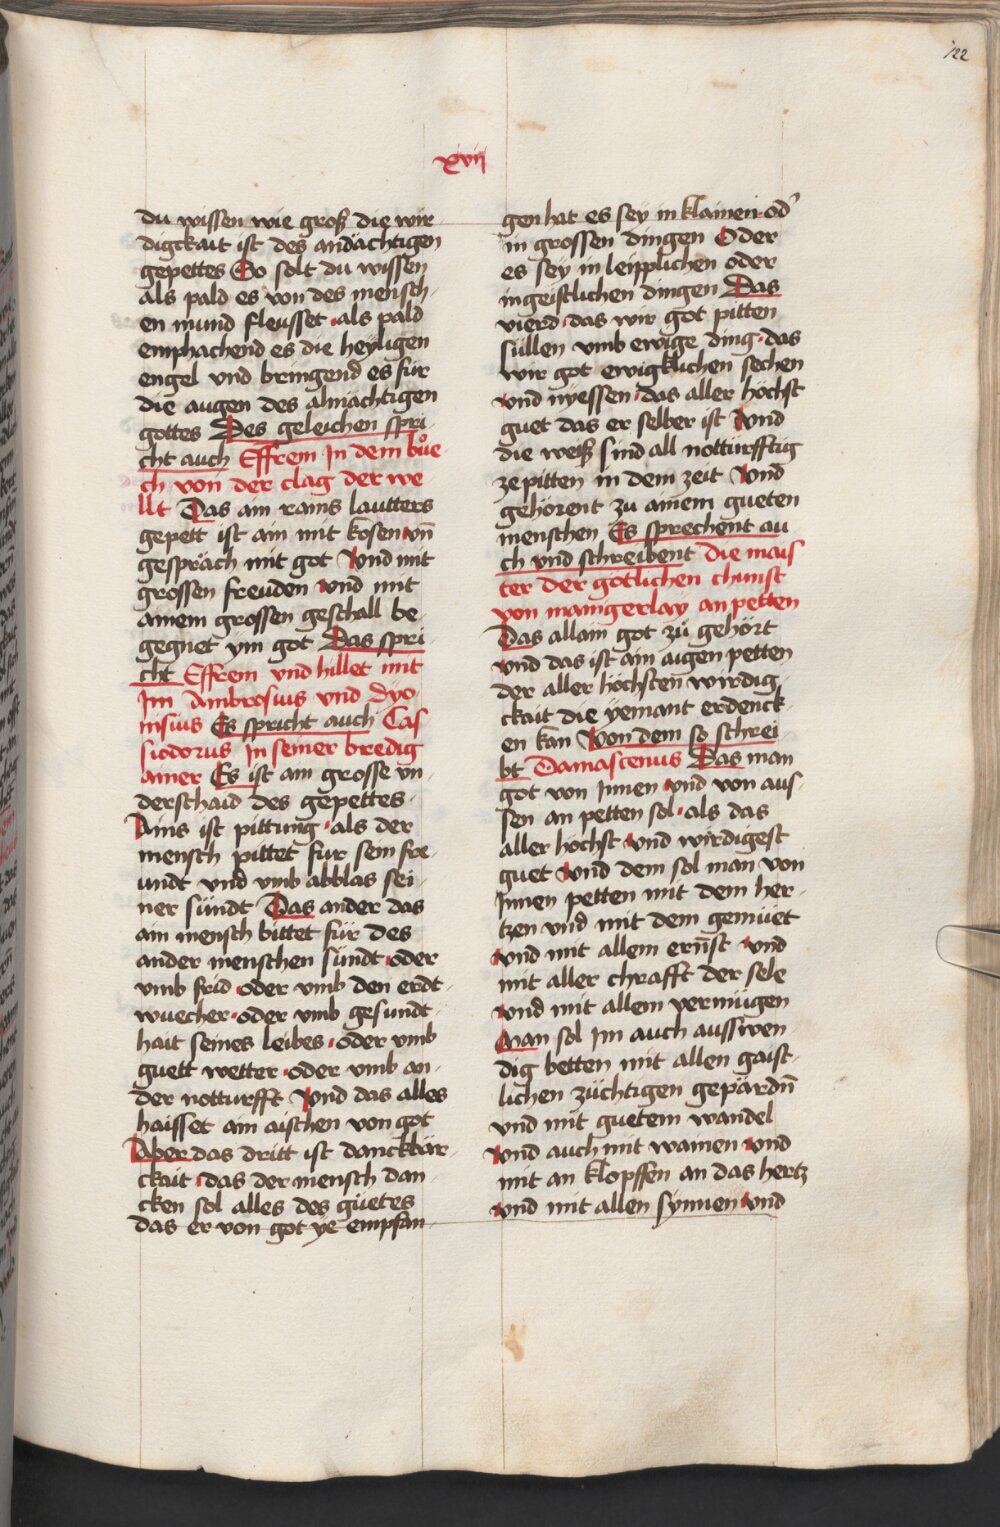 122
xvij
du wissen wie groß die wir
digckait ist des andächtigen
gepettes So solt du wissen
als pald es von des mensch-
en mund fleusset als pald
emphachend es die heyligen
engel vnd bringend es für
die augen des almächtigen
gottes Des geleichen spri-
cht auch Effrem In dem bůe-
ch von der clag der we
llt Das ain rains lautters
gepett ist ain mit kosen vn̄
gespräch mit got Vnd mit
grossen freuden vnd mit
ainem grossen geschall be-
gegnet ym got Das spri-
cht Effrem vnd hillet mit
Im Ambrosius vnd Dyo-
nisius Es spricht auch Cas
siodorus In seiner bredig
ainer Es ist ain grosse vn-
derschaid des gepettes
Ains ist pittung als der
mensch pittet fur sein fre-
undt vnd vmb abblas sei-
ner sündt Das ander das
ain mensch bittet für des
ander menschen sündt oder
vmb frid oder vmb den erdt-
wuecher oder vmb gesundt-
hait seines leibes oder vmb
guett wetter oder vmb an-
der notturfft Vnd das alles
haisset ain aischen von got
Aber das dritt ist danckbär-
ckait das der mensch dan-
cken sol alles des güetes
das er von got ye empfan-
gen hat es sey in klainen od'
in grossen dingen Oder
es sey in leipplichen oder
in geistlichen dingen Das
vierd das wir got pitten
süllen vmb ewige ding das
wir got ewigklichen sechen
vnd nyessen das aller höchst
guet das er selber ist Vnd
die weiß sind all notturfftig
ze pitten in dem zeit Vnd
gehörent zu ainem gueten
menschen Es sprechent au
ch vnd schreibent die mais
ter der götlichen chunst
von maingerlay an petten
Das allain got zů gehört
vnd das ist ain aigen petten
der aller höchsten̄ wirdig-
ckait die yemant erdenck-
en kan Von dem so schrei
bt Damascenus Das man
got von Innen vnd von aus-
sen an petten sol als das
aller höchst vnd wirdigest
guet Vnd dem sol man von
Innen petten mit dem her-
tzen vnd mit dem gemüet
vnd mit allem ern̄st vnd
mit aller chrafft der sele
vnd mit allem vermügen
Man sol Im auch ausswen
dig betten mit allen gaist-
lichen züchtigen gepärdn̄
vnd mit guetem wandel
Vnd auch mit wainen vnd
mit an klopffen an das hertz
vnd mit allen synnen vnd